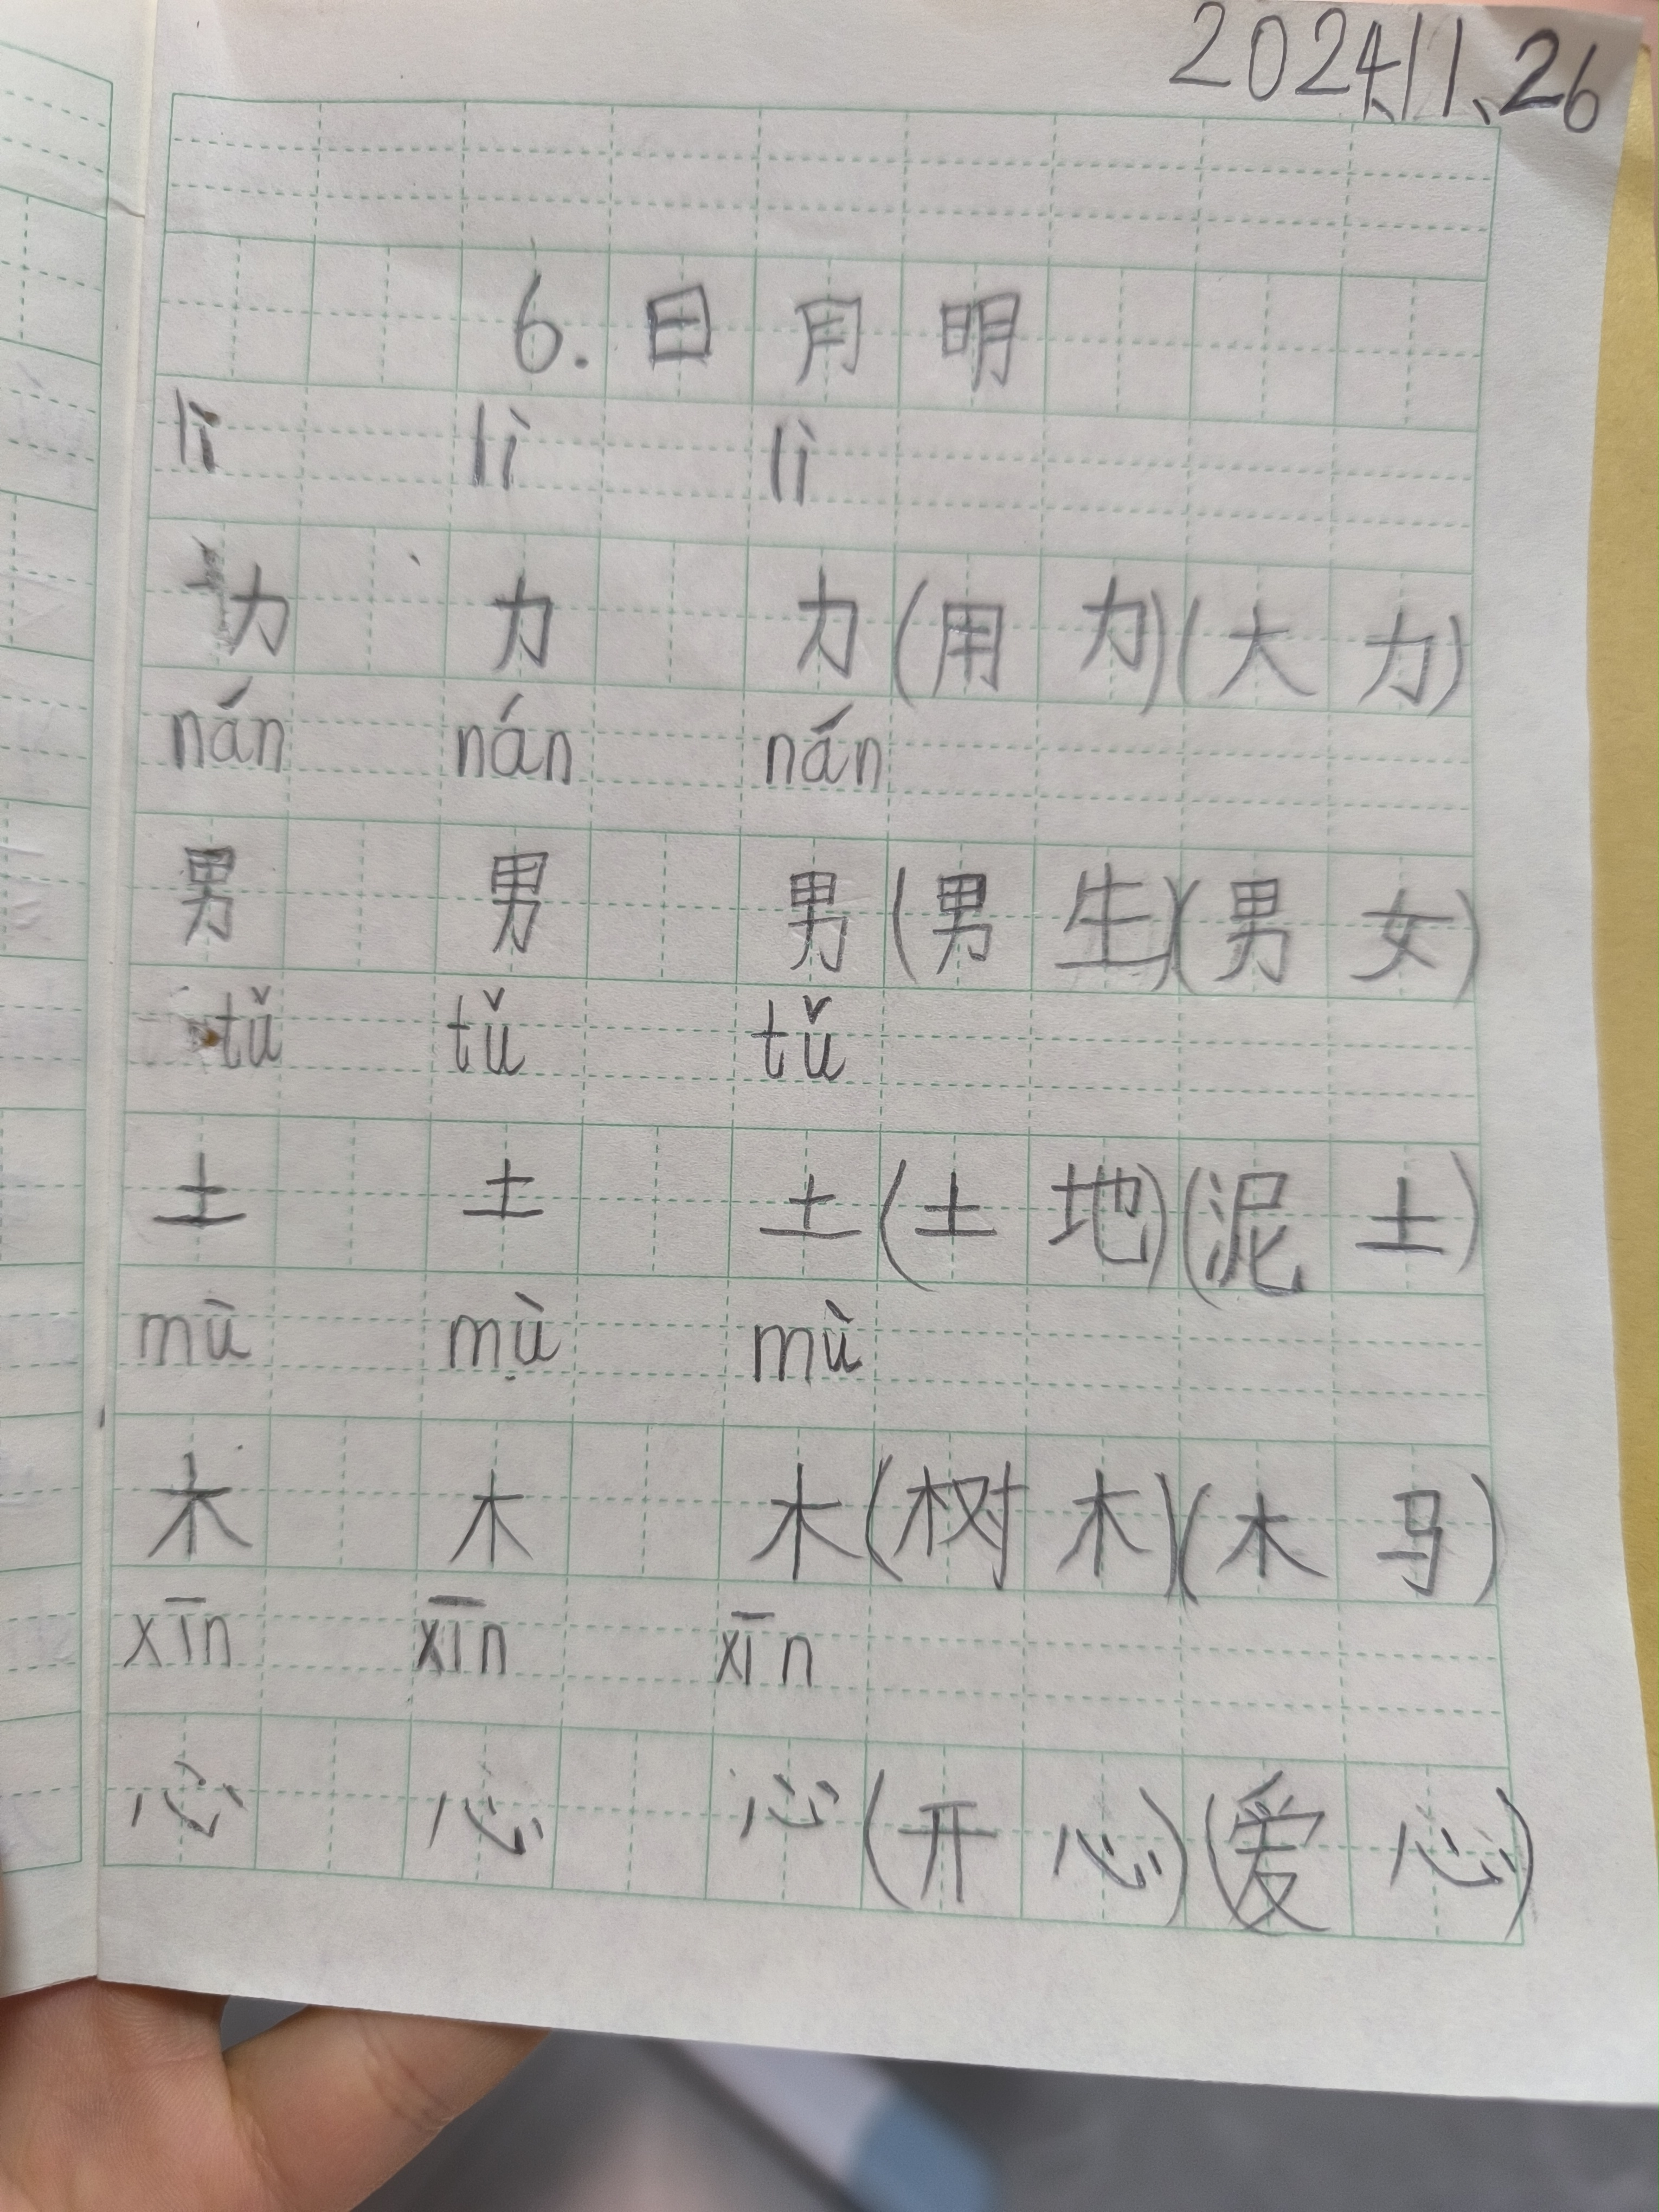 2024.11.26
6. 日月明
lì lì lì
力 力 力(用力)(大力)
nán nán nán
男 男 男(男生)(男女)
tǔ tǔ tǔ
土 土 土(土地)(泥土)
mù mù mù
木 木 木(树木)(木马)
xīn xīn xīn
心 心 心(开心)(爱心)